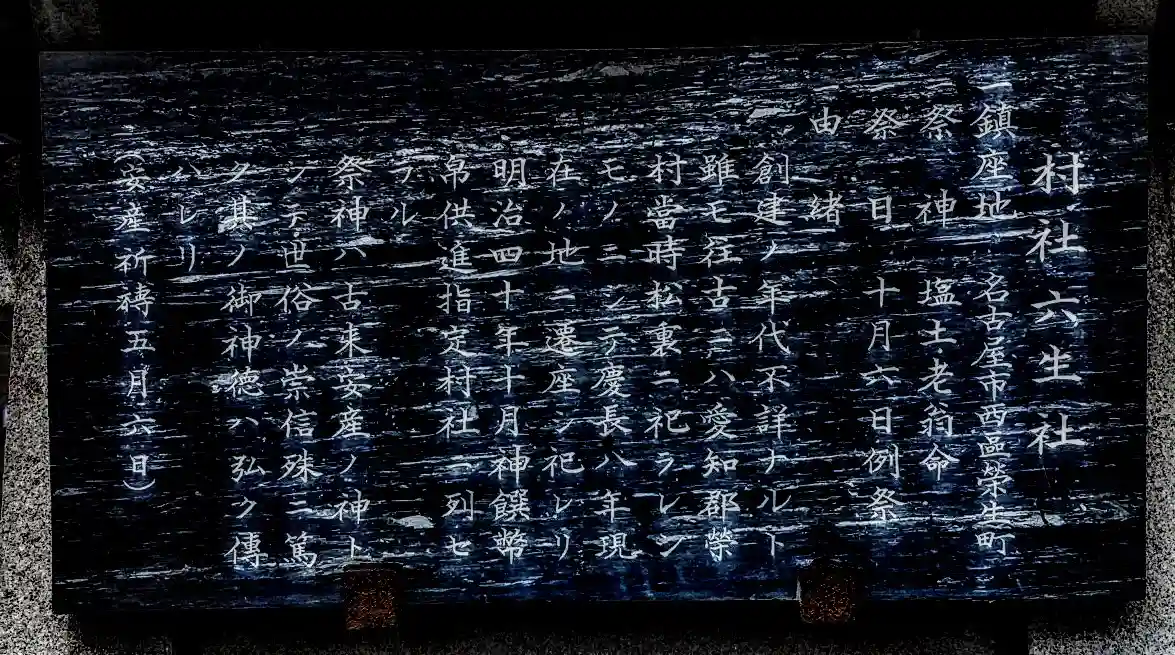 村社六生社
鎮座地 名古屋市西區榮生町
祭神 塩土老翁命
祭日 十月六日例祭
由緒
創建ノ年代不詳ナルト
雖モ往古ニハ愛知郡榮
村當時松裏ニ祀ラレシ
モノニシテ慶長八年現
在ノ地ニ遷座シ祀レリ
明治四十年十月神饌幣
帛供進指定村社ニ列セ
ラル
祭神ハ古来安産ノ神ト
シテ世俗ノ崇信殊ニ篤
ク其ノ御神徳ハ弘ク傳
ハレリ
(安産祈禱五月六日)